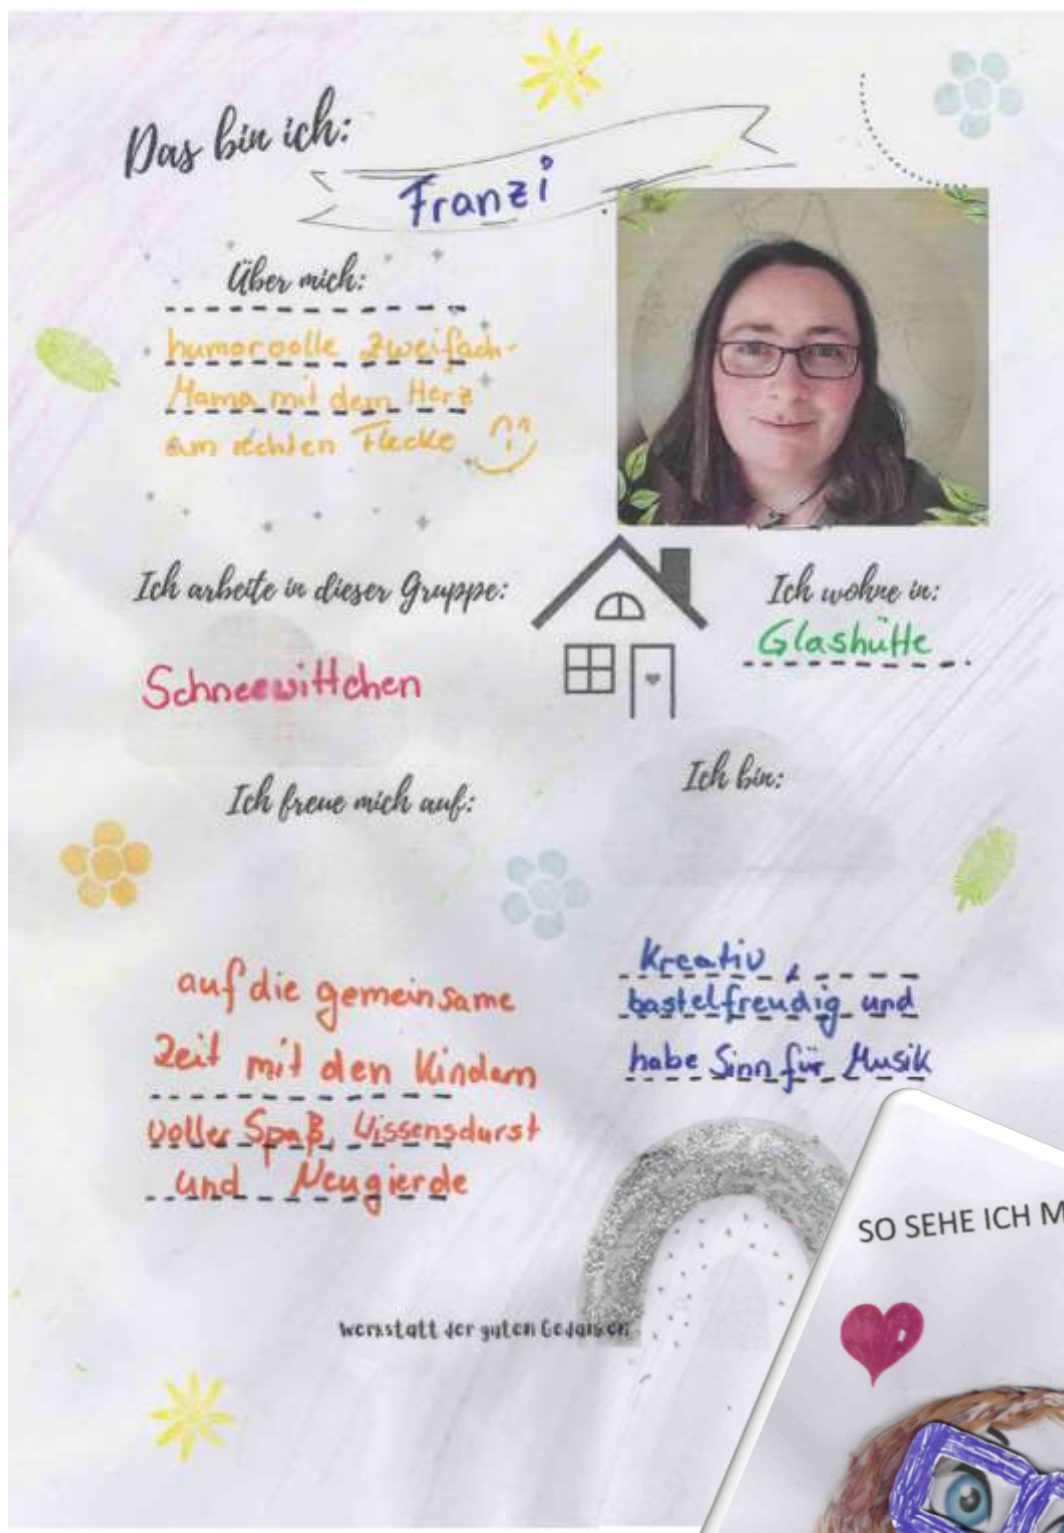 Das bin ich:
Franzi
Über mich:
humorvolle Zweifach-
Mama mit dem Herz
am rechten Flecke
Ich arbeite in dieser Gruppe:
Schneewittchen
Ich wohne in:
Glashütte
Ich freue mich auf:
auf die gemeinsame
Zeit mit den Kindern
voller Spaß, Wissensdurst
und Neugierde
Ich bin:
Kreativ,
bastelfreudig und
habe Sinn für Musik
Werkstatt der guten Gedanken
SO SEHE ICH M